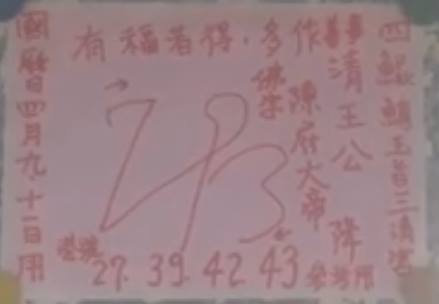 四鯤鯓玉旨三清宮
有福者得.多作善事
清王公
陳府大帝 降
佛字
港號 27. 39. 42 43 參考用
國曆日四月九.十一日用